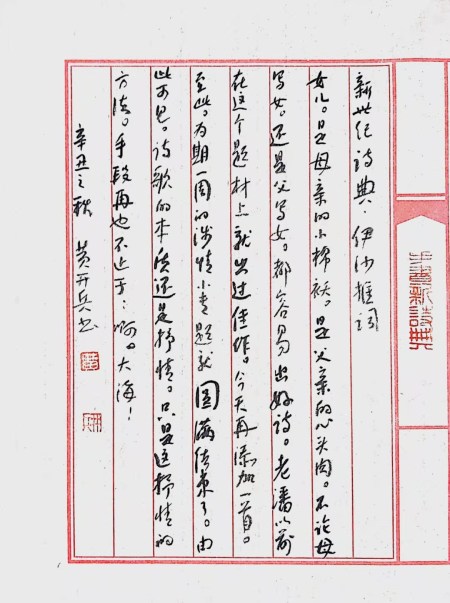 新世纪诗典：伊沙推词
女儿。是母亲的小棉袄。是父亲的心头肉。不论母
写女。还是父写女。都容易出好诗。老潘以前
在这个题材上就出过佳作。今天再添加一首。
至此。为期一周的涉情小专题就圆满结束了。由
此可见。诗歌的本质还是抒情。只是这抒情的
方法。手段再也不止于：啊。大海！
辛丑之秋 黄开兵书